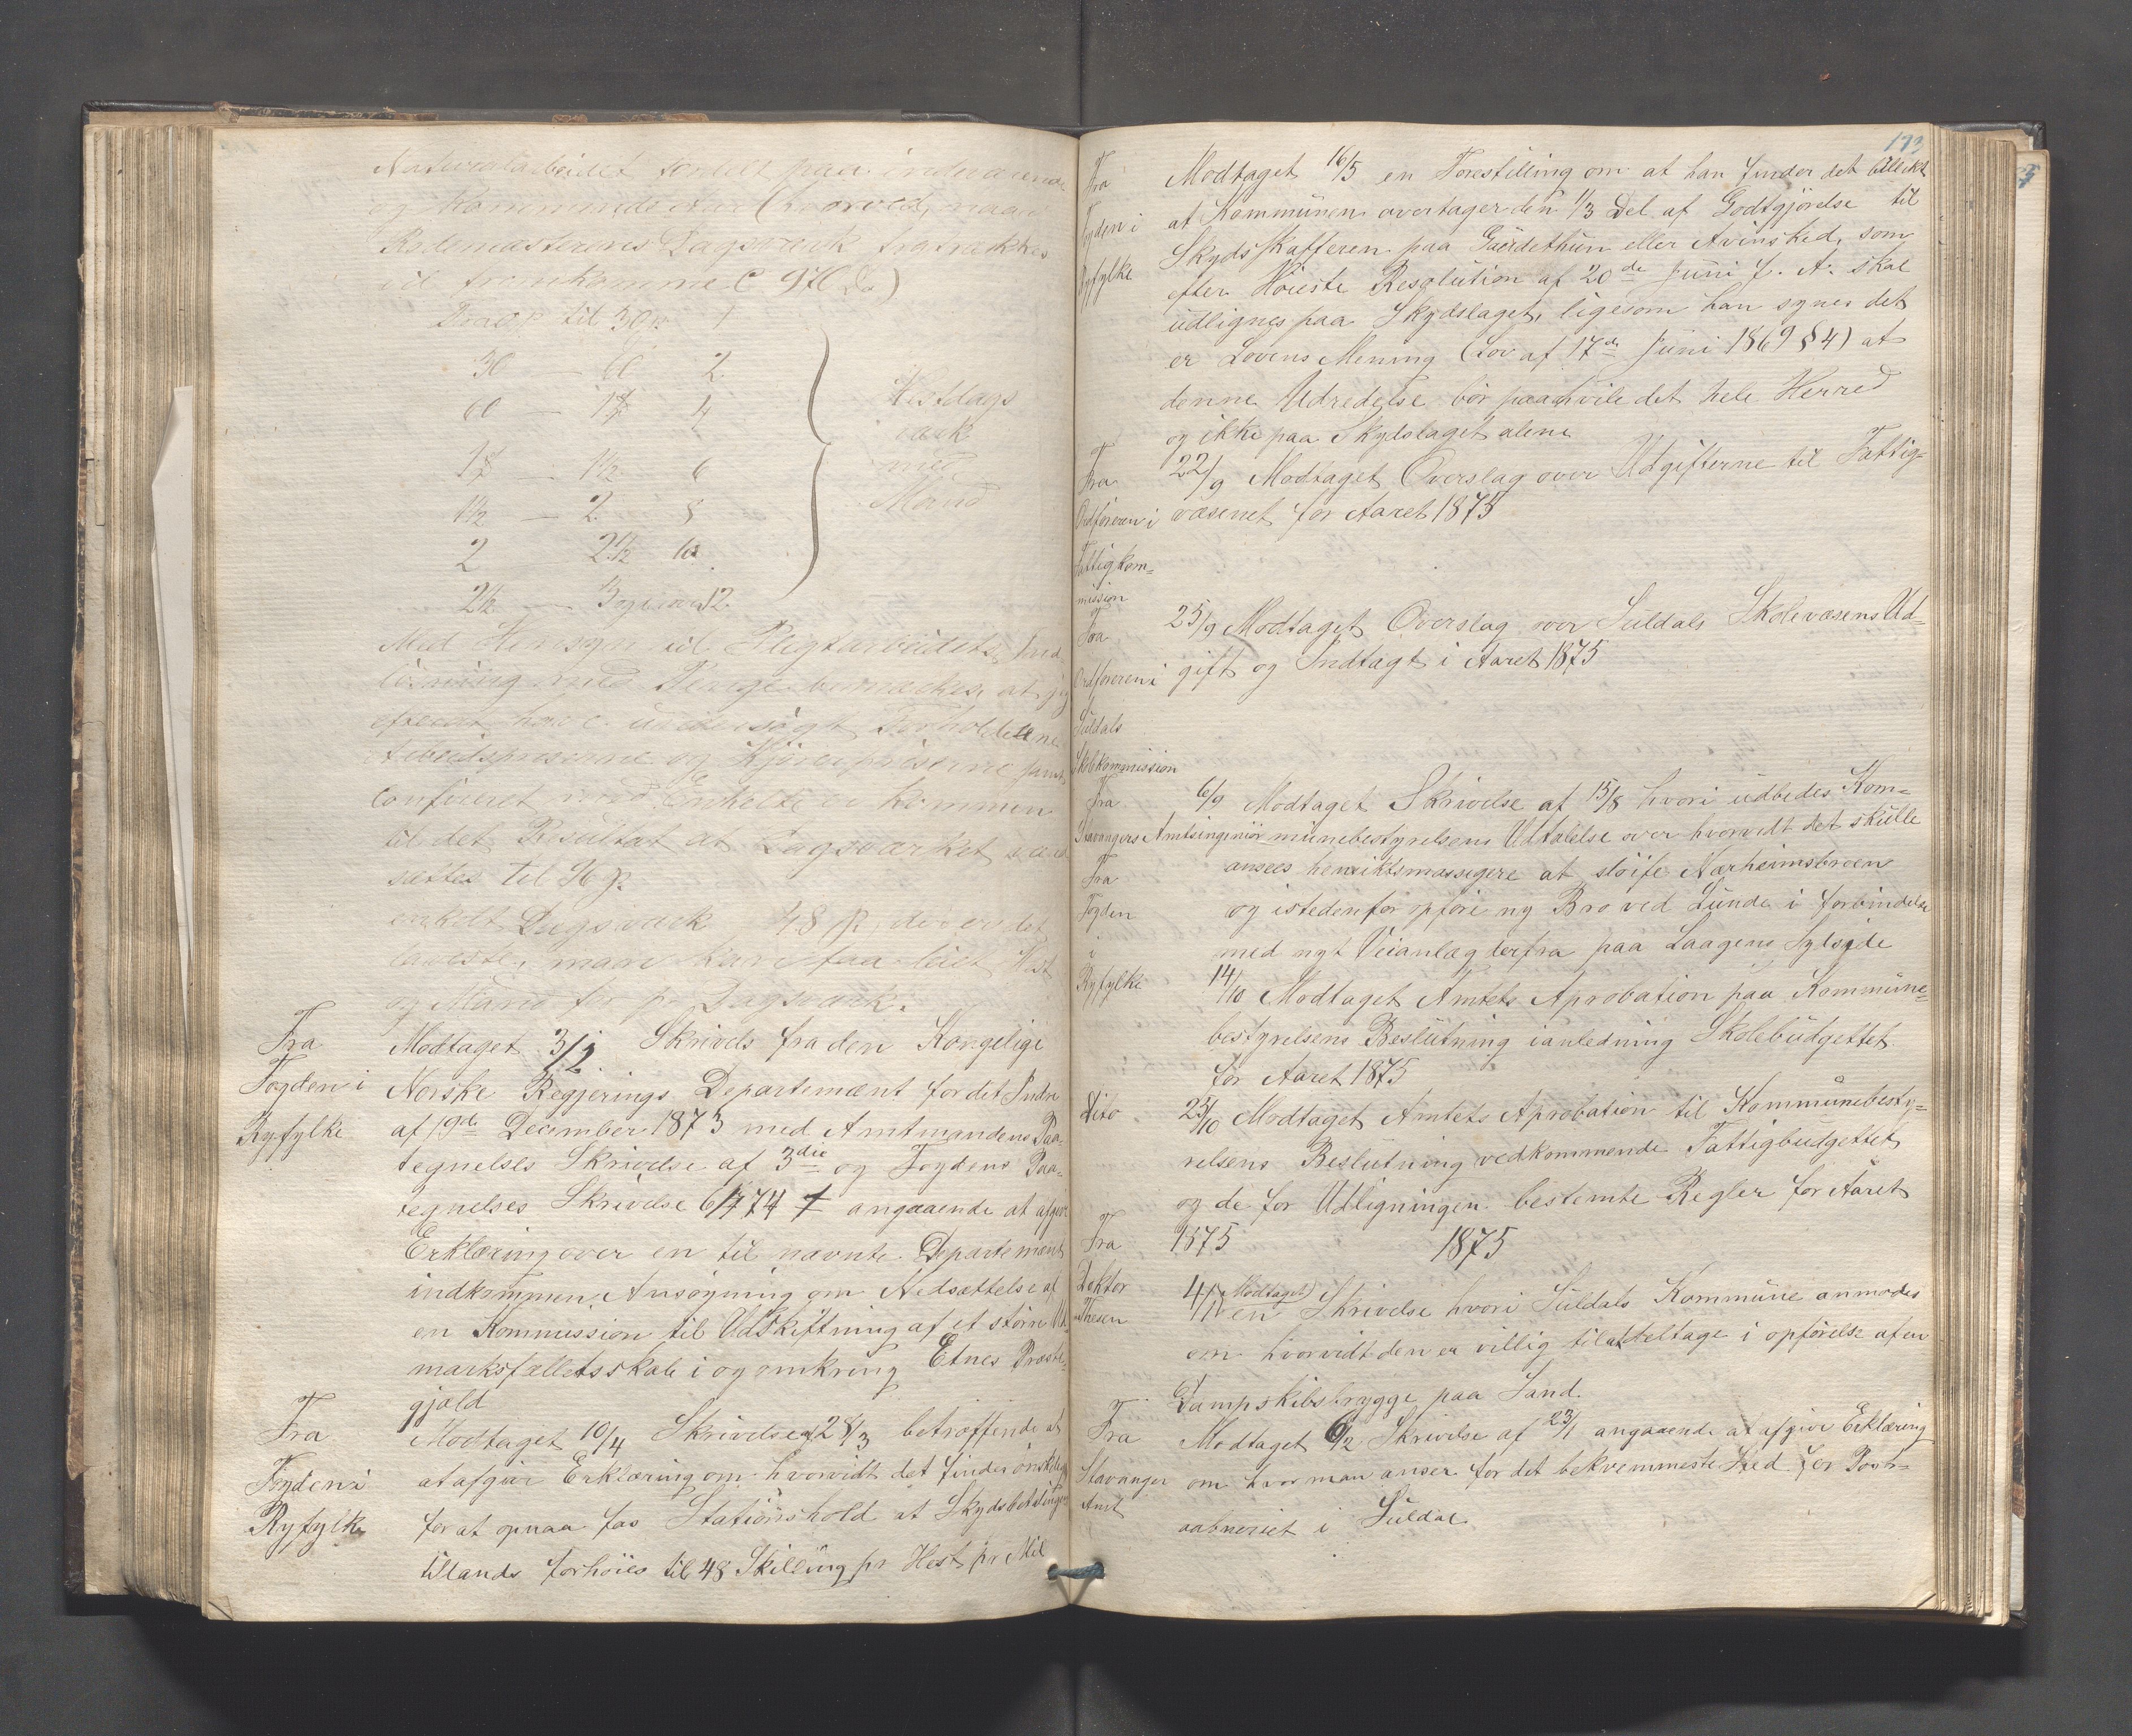 Naturalarbeidet fordelt paa indeværende
og kommende Aar (hvorved, naar
Rodemesterens Dagsværk fratrækkes
vil fremkomme C 970 D.)
til 30 p 1
30 — 60 2
60 — 1 4
1 — 1½ 6
1½ — 2 8
2 2½ 10
2½ — 3 og 12
Hestdags
værk
med
Mand
Med Hensyn til Pligtarbeidets Ind
løsning med Penge bemærkes, at jeg
efterat have undersøgt Forholdene
Arbeidspriserne og Kjørepriserne samt
Confereret med Enkelte er kommen
til det Resultat at Dagsværket
sættes til 96 p.
enkelt Dagsværk 48 p, der er det
laveste, man kan faa leiet Hest
og Mand for pr Dagsværk.
Fra
Fogden i
Ryfylke
Modtaget 3/2 Skrivels fra den Kongelige
Norske Regjerings Departemænt for det Indre
af 19de December 1873 med Amtmandens Paa-
tegnelses Skrivelse af 3die og Fogdens Paa-
tegnelses Skrivelse 6/1 74 angaaende at afgive
Erklæring over en til nævnte Departemænt
indkommen Ansøgning om Nedsættelse af
en Kommission til Udskiftning af et større Ud-
marksfællesskab i og omkring Etnes Præste-
gjæld
Fra
Fogden i
Ryfylke
Modtaget 10/4 Skrivelse af 28/3 betræffende at
at afgive Erklæring om hvorvidt det findes ønskeligt
for at opnaa fas Stationshold at Skydsbetalingen
tillands forhøies til 48 Skilling pr Hest pr Mil
173
Fra
Fogden i
Ryfylke
Modtaget 16/5 en Forestilling om at han finder det billikt
at Kommünen overtager den 1/3 Del af Godtgjörelse til
Skydsskafferen paa Guerdethun eller Arinsked, som
efter Høieste Resolution af 20de Juni f. A. skal
üdlignes paa Skydslaget, ligesom han synes det
er Lovens Mening (Lov af 17de Juni 1869 § 4) at
denne Udredelse bør paahvile det hele Herred
og ikke paa Skydslaget alene
Fra
Ordføreren i
Fattigkom-
mission
22/9 Modtaget Overslag over Udgifterne til Fattig-
væsenet for Aaret 1875
Fra
Ordføreren i
Süldals
Skolekommission
25/9 Modtaget Overslag over Süldals Skolevæsens Ud-
gift og Indtagt i Aaret 1875
Fra
Stavangers Amtsingeniør
6/9 Modtaget Skrivelse af 15/8 hvori üdbedes Kom-
münebestyrelsens Udtalelse over hvorvidt det skülle
ansees hensiktsmæssigere at sløife Nærheimsbroen
og istedenfor opføre ny Bro ved Lünde i forbindelse
med nyt Veianlæg derfra paa Laagens Sydside
Fra
Fogden
i
Ryfylke
14/10 Modtaget Amtets Aprobation paa Kommüne-
bestyrelsens Beslütning ianledning Skolebüdgettet
for Aaret 1875
Dito
23/10 Modtaget Amtets Aprobation til Kommünebesty-
relsens Beslütning vedkommende Fattigbüdgettet
og de for Udligningen bestemte Regler for Aaret
1875
1875
Fra
Doktor
Thesen
4/1 Modtaget en Skrivelse hvori Süldals Kommüne anmodes
om hvorvidt den er villig til at deltage i opførelse af en
Dampskibsbrygge paa Sand.
Fra
Stavanger
Amt
Modtaget 6/2 Skrivelse af 23/1 angaaende at afgive Erklæring
om hvor man anser for det bekvemmeste Sted for Post-
aabneriet i Süldal